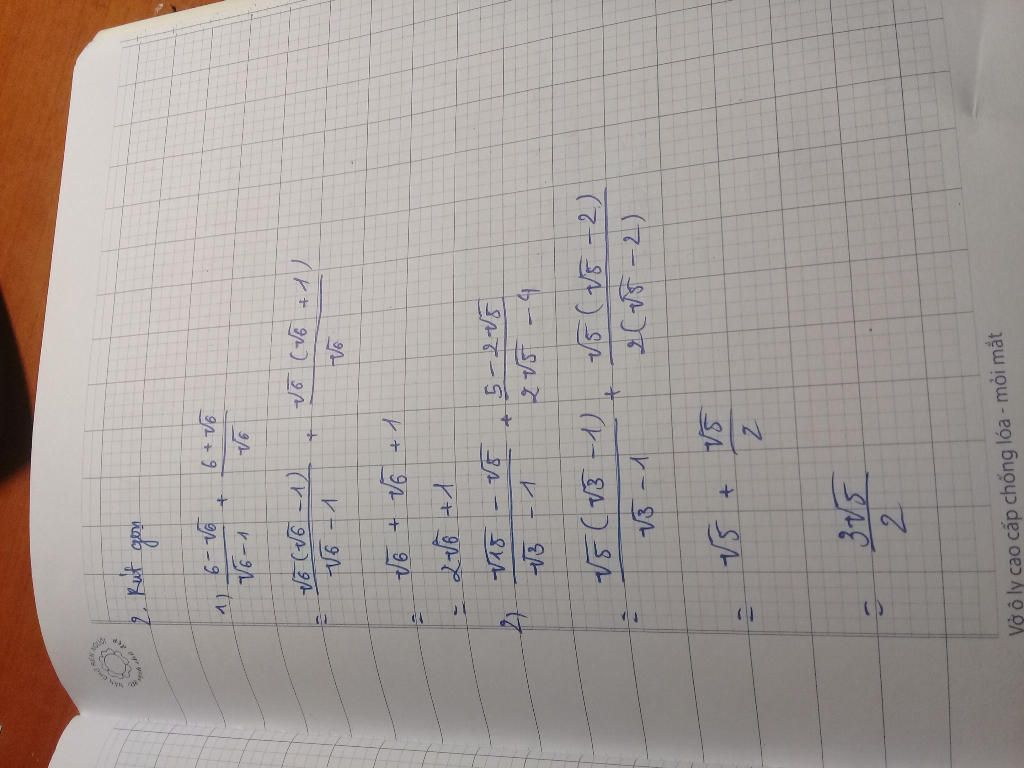 2. Rút gọn
1) \frac{6-√6}{√6-1} + \frac{6+√6}{√6}
= \frac{√6(√6-1)}{√6-1} + \frac{√6(√6+1)}{√6}
= √6 + √6 + 1
= 2√6 + 1
2) \frac{√15-√5}{√3-1} + \frac{5-2√5}{2√5-4}
= \frac{√5(√3-1)}{√3-1} + \frac{√5(√5-2)}{2(√5-2)}
= √5 + \frac{√5}{2}
= \frac{3√5}{2}
Vở ô ly cao cấp chống lóa - mỏi mắt